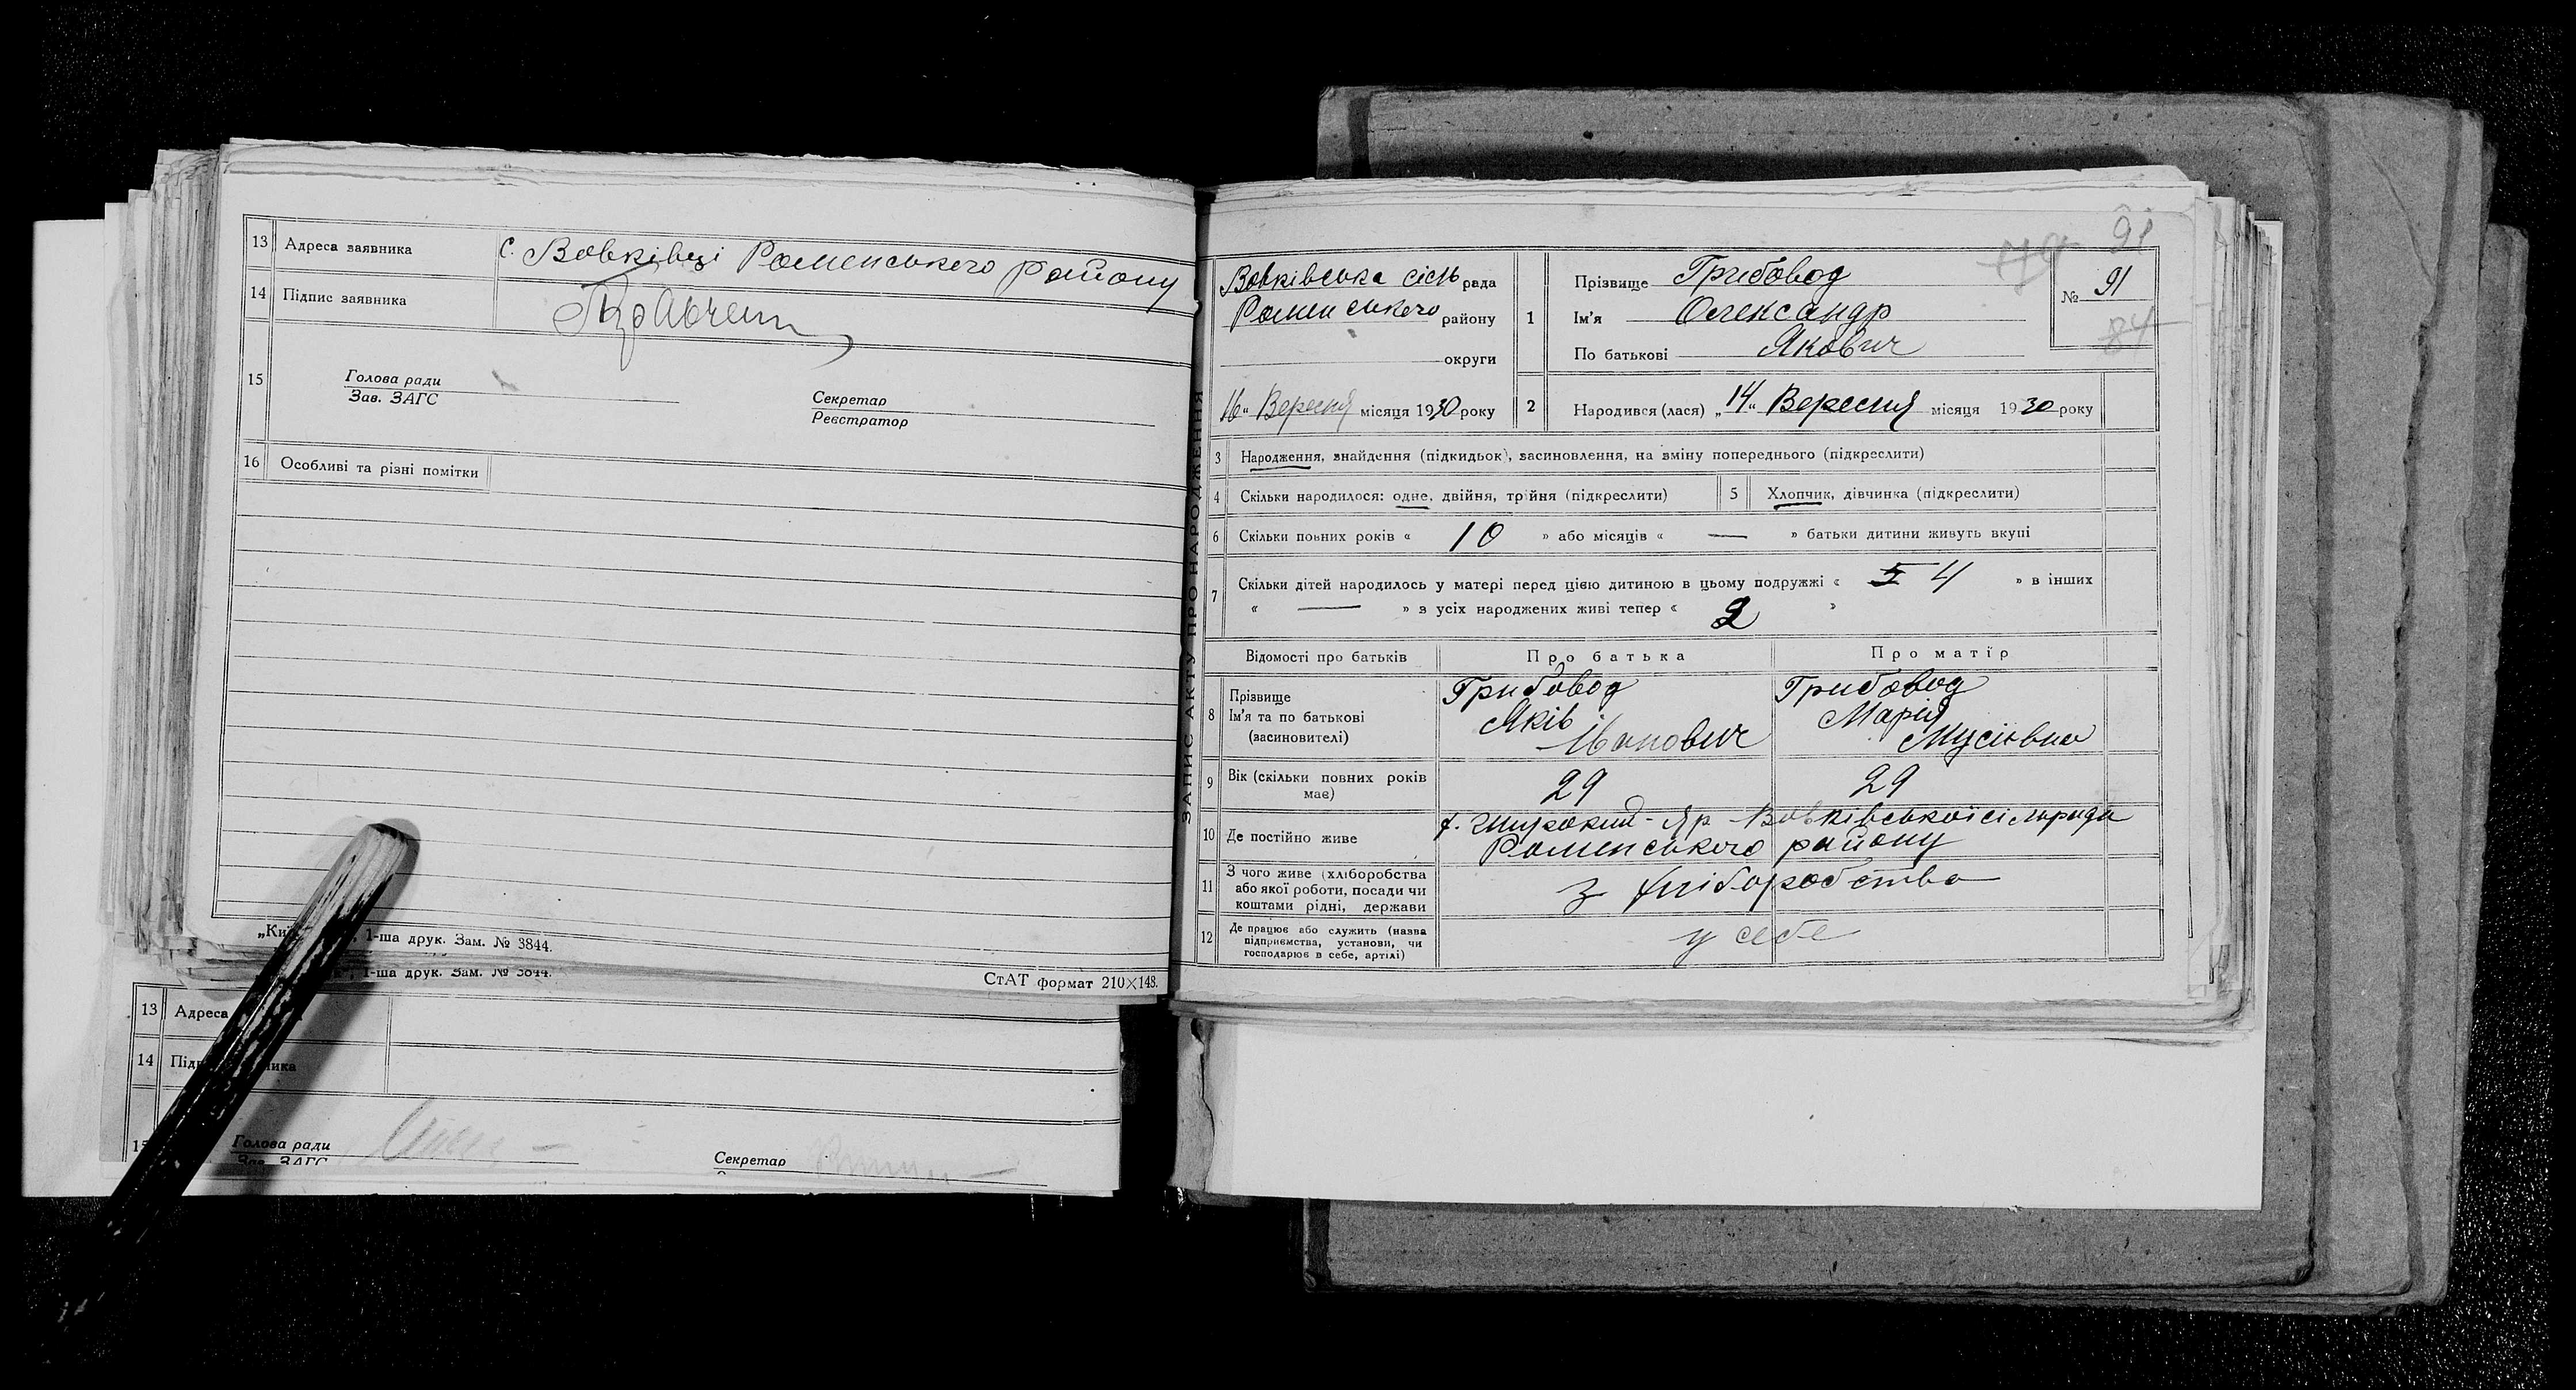 13 Адреса заявника с. Вовківці Роменського району
14 Підпис заявника
15 Голова ради
Зав. ЗАГС
Секретар
Реєстратор
16 Особливі та різні помітки
1-ша друк. Зам. № 3844.
1-ша друк. Зам. № 3844.
СтАТ формат 210×148.
13 Адреса
14
Голова ради
Зав. ЗАГС
Секретар
ЗАПИС АКТУ ПРО НАРОДЖЕННЯ
91
Вовківська сіль рада
Роменського району
округи
16 „ Вересня місяця 1930 року
1 Прізвище Грибовод
Ім'я Олександр
По батькові Якович
№ 91
84
2 Народився (лася) „ 14 “ Вересня місяця 1930 року
3 Народження, знайдення (підкидьок), засиновлення, на зміну попереднього (підкреслити)
4 Скільки народилося: одне, двійня, трійня (підкреслити) 5 Хлопчик, дівчинка (підкреслити)
6 Скільки повних років « 10 » або місяців « — » батьки дитини живуть вкупі
7 Скільки дітей народилось у матері перед цією дитиною в цьому подружжі « 5 4 » в інших
« — » з усіх народжених живі тепер « 2 »
Відомості про батьків Про батька Про матір
8 Прізвище Ім'я та по батькові (засиновителі)
Грибовод Яків Іванович
Грибовод Марія Мусіївна
9 Вік (скільки повних років має) 29 29
10 Де постійно живе х. Широкий-Яр Вовківської сільради
Роменського району
11 З чого живе (хліборобства
або якої роботи, посади чи
коштами рідні, держави
з хліборобства
12 Де працює або служить (назва
підприємства, установи, чи
господарює в себе, артілі)
у себе